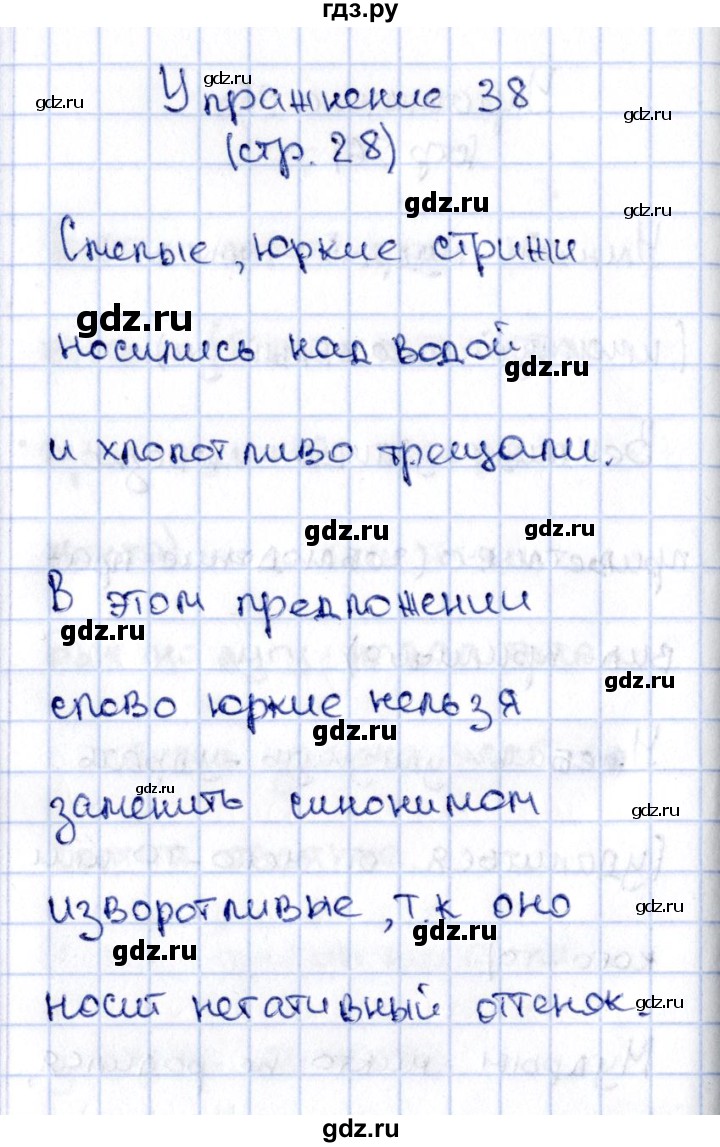 гдз.ру
gdz.ru
Упражнение 38
gdz.ru
gdz.ru
(стр. 28)
gdz.ru
gdz.ru
Смелые, юркие стрижи
gdz.ru
носились над водой
gdz.ru
и хлопотливо трещали.
gdz.ru
gdz.ru
В этом предложении
gdz.ru
слово юркие нельзя
gdz.ru
gdz.ru
gdz.ru
заменить синонимом
gdz.ru
изворотливые, т.к оно
gdz.ru
gdz.ru
gdz.ru
носит негативный оттенок.
gdz.ru
gdz.ru